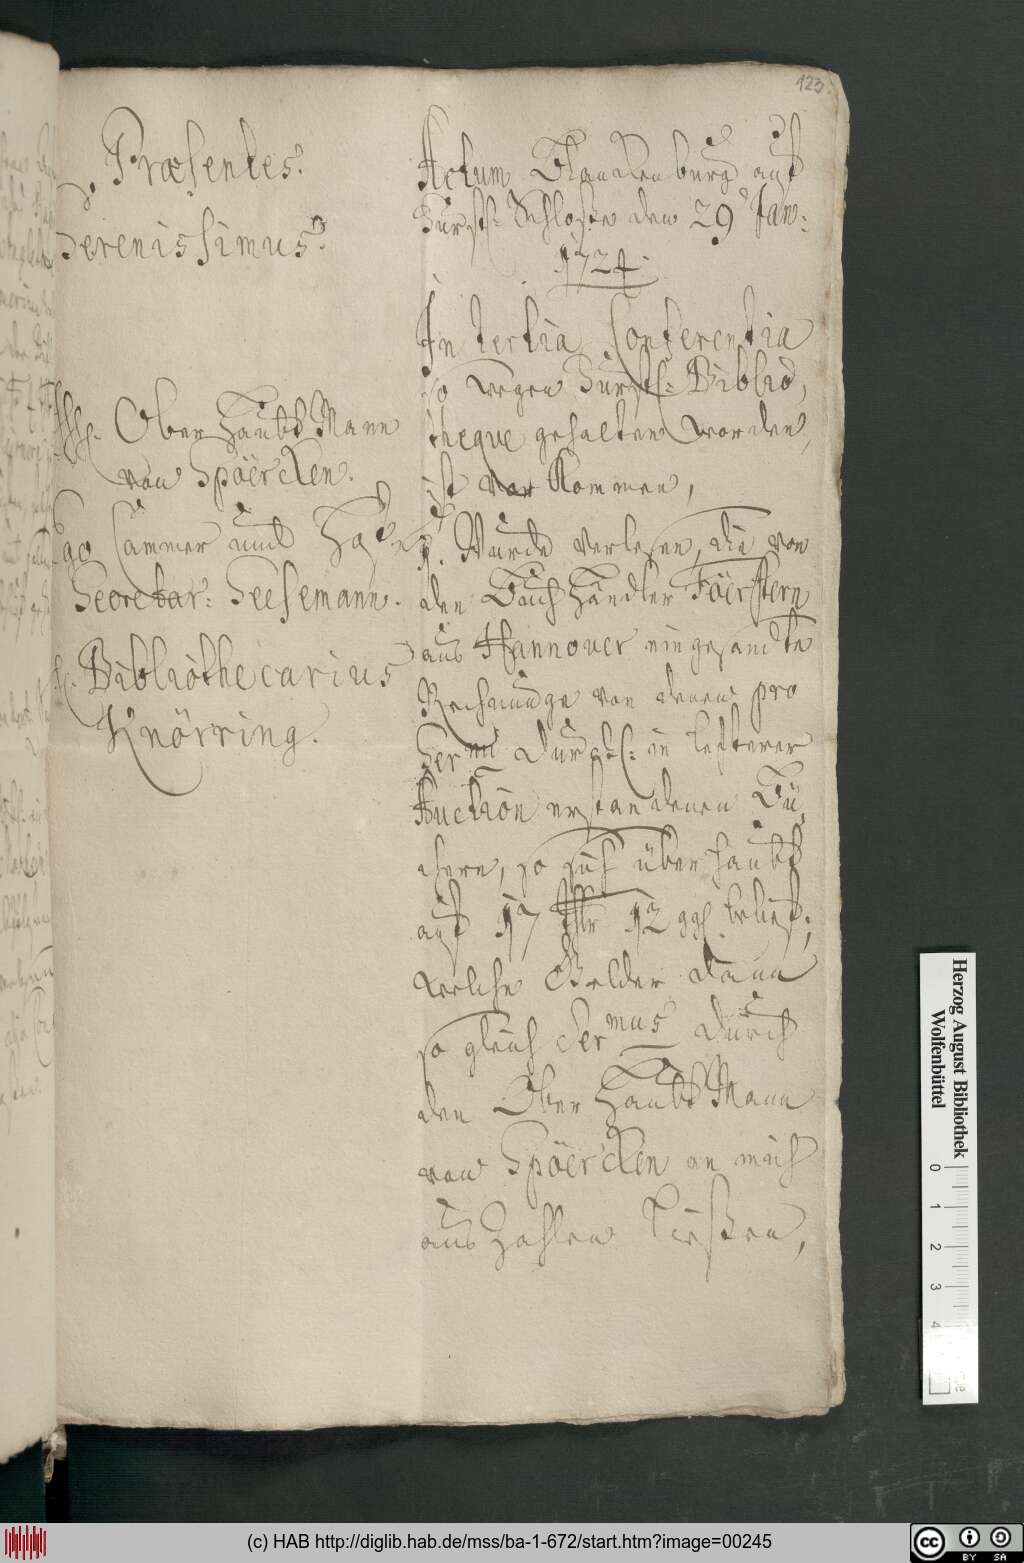 123.
Præsentes.
Serenissimus.
Ober Haubt Mann
von Spöercken.
Cammer und
Secretar: Seesemann.
Bibliothecarius
Knörring.
Actum Blanckenburg auf
Fürstl: Schloße den 29 Jan:
1724.
In tertia Conferentia
so wegen Fürstl: Biblio,
theque gehalten worden,
ist vor Kommen,
1. Wurde verlesen, die von
den Buch Händler Föerstern
aus Hannover eingesandte
Rechnunge von denen pro
Ser.mi Durchl: in letzterer
Auction erstandenen Bü,
chern, so sich über haubt
auf 17 thlr 12 ggl. belief;
welche Gelder dann
so gleich Ser.mus durch
den Ober Haubt Mann
von Spöercken an mich
aus Zahlen ließen,
Herzog August Bibliothek
Wolfenbüttel
0
1
2
3
4
(c) HAB http://diglib.hab.de/mss/ba-1-672/start.htm?image=00245
CC BY SA